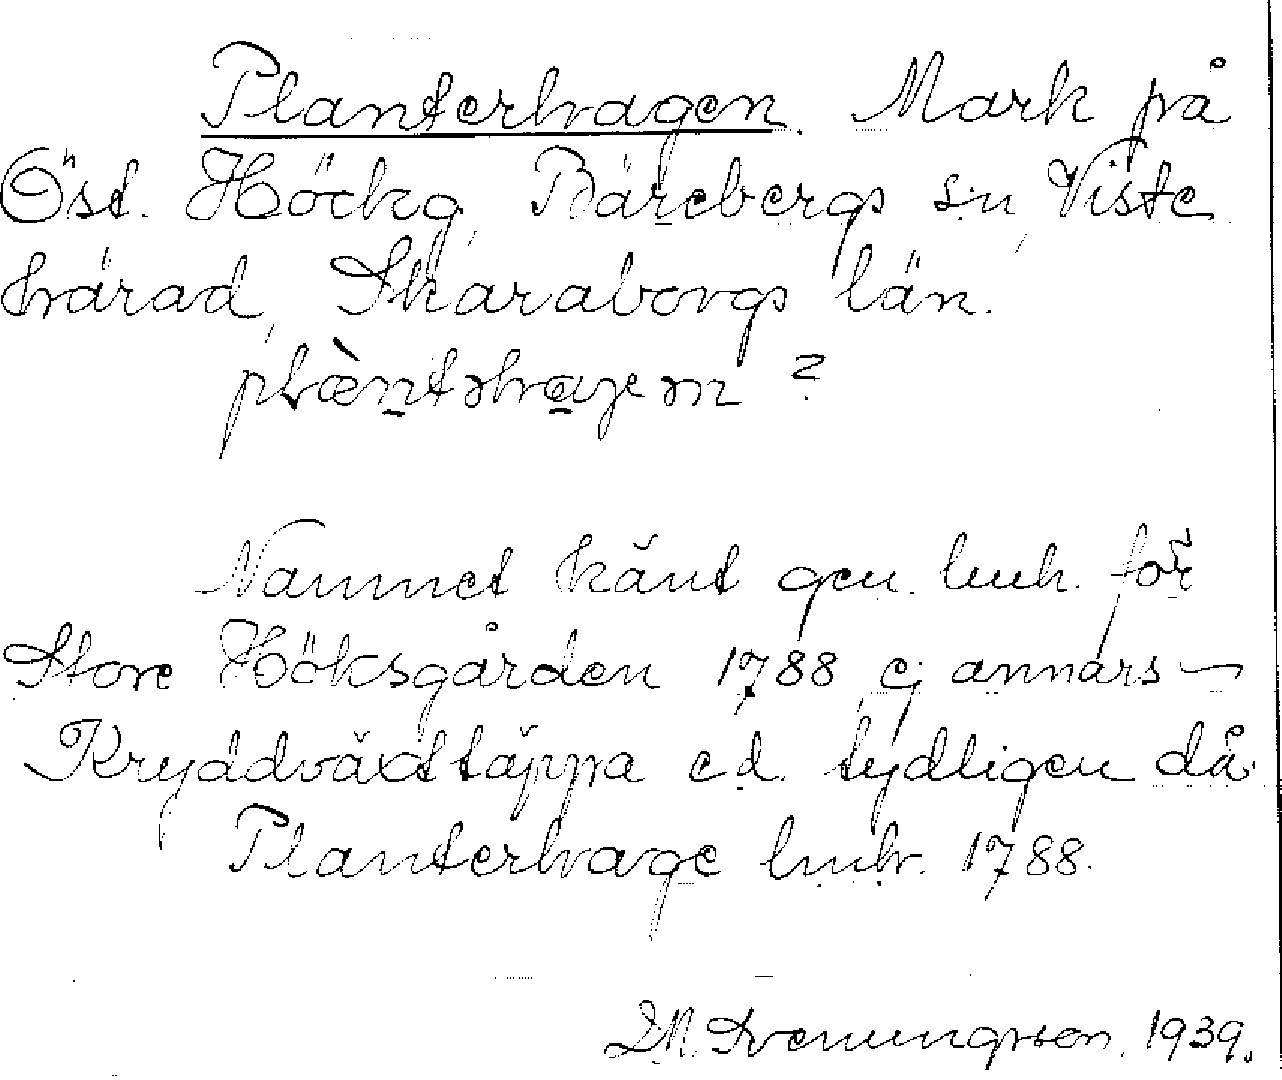 Planterhagen. Mark på
Öst. Höckg, Bärebergs sn, Viste
härad, Skaraborgs län.
plæ̀ntərhaɡen ?
Namnet känt gen. lmh. för
Store Höksgården 1788 ej annars –
Kryddväxttäppa e d. tydligen då.
Planterhage lmh. 1788.
D.N. Svenungsson. 1939.